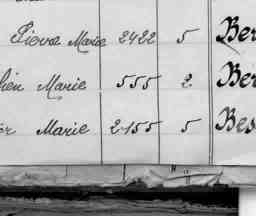 Pierre Marie 2422 5 Ber
hien Marie 555 2 Ber
er Marie 2155 5 Bes